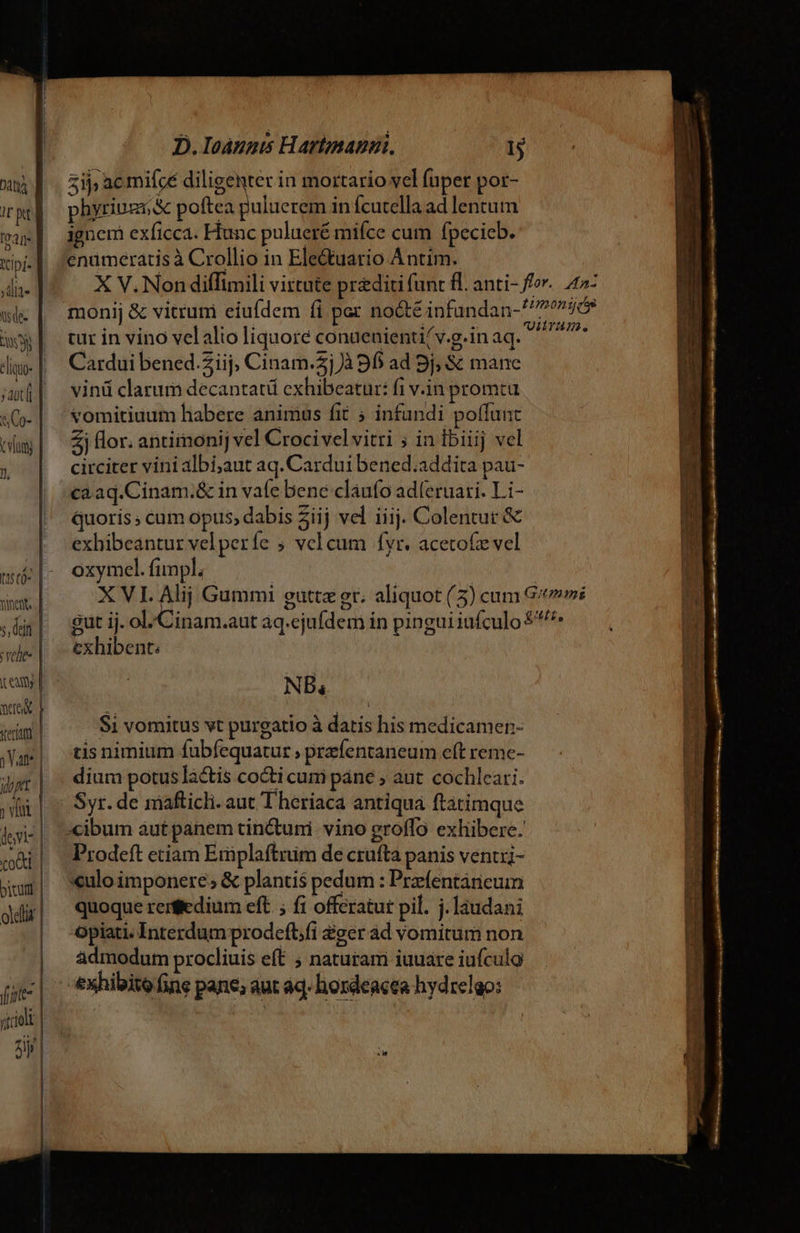 D. Ioánnis Hartmanni. 15
ʒij, ac misce diligenter in mortario vel super por-
phyrium, & postea puluerem in scutella ad lentum
ignem exsicca. Hunc pulueré misce cum specieb.
enumeratis à Crollio in Electuario Antim.
X V. Non dissimili virtute præditi sunt fl. anti- flor. An-
monij & vitrum eiusdem si per nocté infundan- timonij &
tur in vino vel alio liquore conuenienti (v.g. in aq. vitrum.
Cardui bened. ℥iij, Cinam. ℥j) à ℈ß ad ℈j, & mane
vinū clarum decantatū exhibeatur: si v. in promtu
vomitiuum habere animus sit ; infundi possunt
℥j flor. antimonij vel Croci vel vitri ; in lbiiij vel
circiter vini albi, aut aq. Cardui bened. addita pau-
ca aq. Cinam. & in vase bene clauso adseruari. Li-
quoris, cum opus, dabis ℥iij vel iiij. Colentur &
exhibeantur vel per se , vel cum syr. acetosæ vel
oxymel. simpl.
X V I. Alij Gummi guttæ gr. aliquot (5) cum Gummi
gut ij. ol. Cinam. aut aq. ejusdem in pingui iusculo guttæ.
exhibent.
NB.
Si vomitus vt purgatio à datis his medicamen-
tis nimium subsequatur , præsentaneum est reme-
dium potus lactis cocti cum pane , aut cochleari.
Syr. de mastich. aut Theriaca antiqua statimque
cibum aut panem tinctum vino grosso exhibere.
Prodest etiam Emplastrum de crusta panis ventri-
culo imponere, & plantis pedum : Præsentaneum
quoque remedium est , si offeratur pil. j. laudani
opiati. Interdum prodest, si æger ad vomitum non
admodum procliuis est , naturam iuuare iusculo
exhibito sine pane, aut aq. hordeacea hydrelæo: